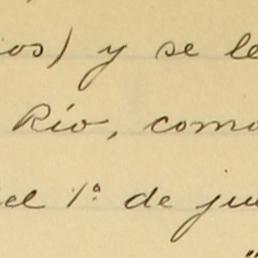 ios) y se le
Río, como
el 1º de ju
"